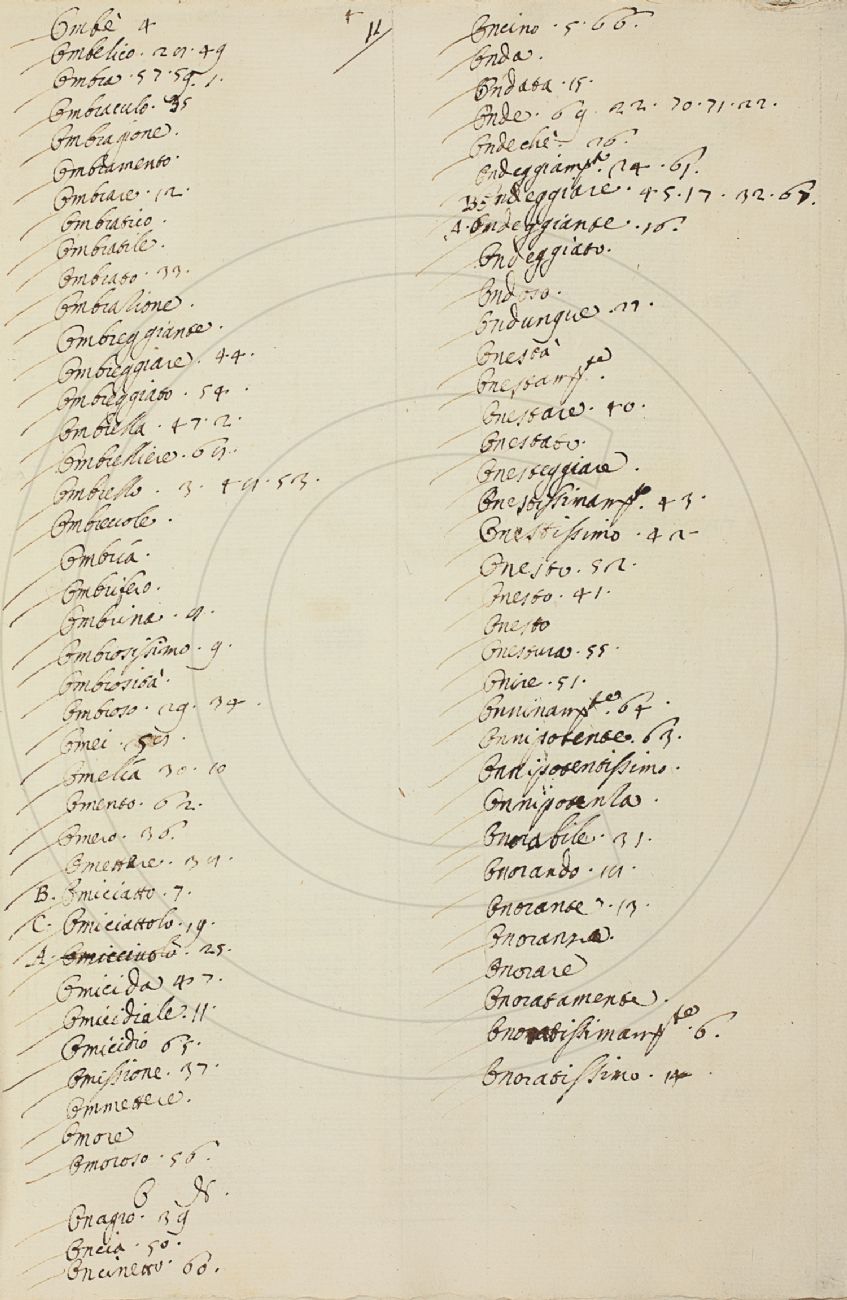 4
11
Ombè 4
Ombelico · 29 · 49
Ombra · 57 · 59 · 1 ·
Ombraculo · 35
Ombragione ·
Ombramento ·
Ombrare · 12 ·
Ombratico ·
Ombratile ·
Ombrato · 33 ·
Ombrazione ·
Ombreggiante ·
Ombreggiare · 44 ·
Ombreggiato · 54 ·
Ombrella · 47 · 2 ·
Ombrelliere · 69 ·
Ombrello · 3 · 49 · 53 ·
Ombrevole ·
Ombria ·
Ombrifero ·
Ombrina · 9 ·
Ombrosissimo · 9 ·
Ombrosità ·
Ombroso · 29 · 34 ·
Omei ·
Omelia 30 · 10
Omento · 62 ·
Omero · 36 ·
Omettere · 39 ·
B. Omiciatto · 7 ·
C. Omiciattolo · 19 ·
A. Omicciuolo · 25 ·
Omicida 47 ·
Omicidiale · 11 ·
Omicidio 65 ·
Omissione · 37 ·
Ommettere ·
Omore
Omoroso · 56 ·
O N ·
Onagro · 39
Oncia · 50 ·
Oncinetto · 60 ·
Oncino · 5 · 66 ·
Onda ·
Ondata · 15 ·
Onde · 69 · 22 · 70 · 71 · 22 ·
Ondechè · 26 ·
Ondeggiam.te · 24 · 61 ·
B Ondeggiare · 45 · 17 · 32 · 65 ·
A · Ondeggiante · 16 ·
Ondeggiato ·
Ondoso ·
Ondunque · 27 ·
Onestà
Onestam.te ·
Onestare · 40 ·
Onestato ·
Onesteggiare ·
Onestissimam.te · 43 ·
Onestissimo · 42 ·
Onesto · 52 ·
Onesto · 41 ·
Onesto
Onestura · 55 ·
Onire · 51 ·
Onninam.te · 64 ·
Onnipotente · 63 ·
Onnipotentissimo ·
Onnipotenza ·
Onorabile · 31 ·
Onorando · 19 ·
Onorante · 13 ·
Onoranza ·
Onorare
Onoratamente ·
Onoratissimam.te · 6 ·
Onoratissimo · 14 ·